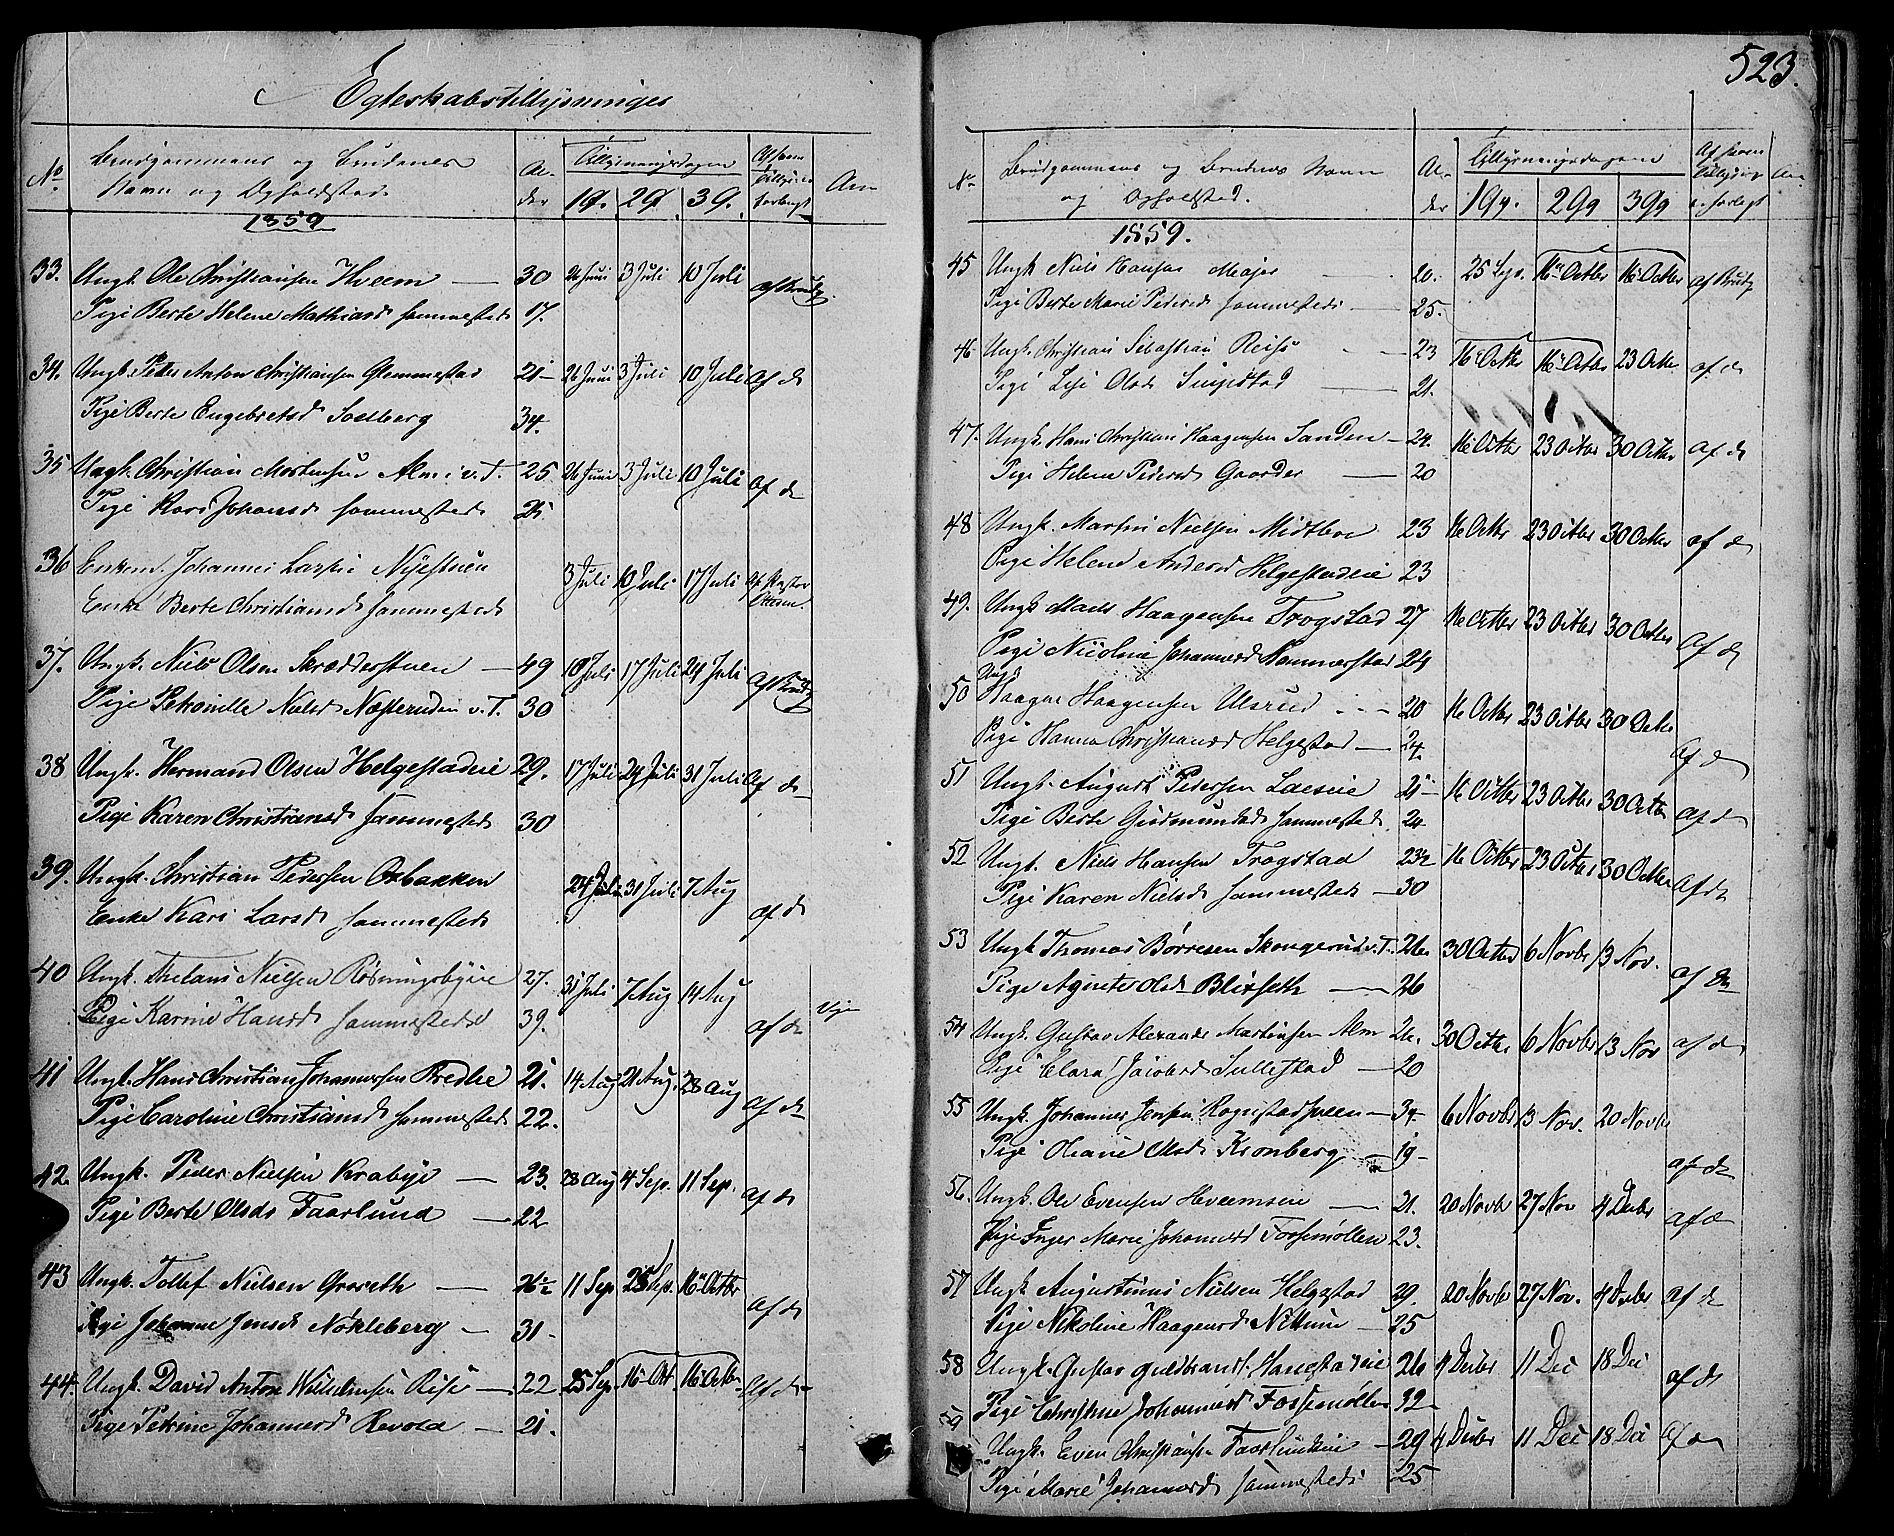 Egteskabstillysninger
No
Brudgommens og Brudenes Navn og Opholdsted
Alder
Tillysningsdagen
1ste 2den 3die
Af hvem Tillysning forlangt
Anm
1859
33. Ungk. Ole Christiansen Hveem — 30 26 Juni 3 Juli 10 Juli af Brudg.
Pige Berte Helene Mathiasd sammesteds 17.
34. Ungk. Peder Anton Christiansen Glemmestad 21 26 Juni 3 Juli 10 Juli af do
Pige Berte Engebretsd Soelberg 34.
35 Ungk. Christian Mortensen Alm i v. T. 25 26 Juni 3 Juli 10 Juli af do
Pige Kari Johansd sammesteds 25
36 Enkem. Johannes Larsen 3 Juli 10 Juli 17 Juli af Pastor
Enke Berte Christiansd sammesteds
37. Ungk. Niels Olsen Skrædderstuen — 49 10 Juli 17 Juli 24 Juli af Brudg
Pige Petronille Nielsd Næsteruden v. T. 30
38 Ungk. Hermand Olsen Helgestadeie 29. 17 Juli 24 Juli 31 Juli af do
Pige Karen Christiansd sammesteds 30
39. Ungk. Christian Pedersen Oxbakken 24 Juli 31 Juli 7 Aug
Enke Kari Larsd sammesteds af do
40 Ungk. Nielsen 27. 31 Juli 7 Aug 14 Aug
Pige Karine Hansd sammesteds 39. af do
41 Ungk. Hans Christian Johannessen Bredlie 21. 14 Aug 21 Aug. 28 Aug
Pige Caroline Christiansd sammesteds 22. af do
42. Ungk. Peder Nielsen Kraby — 23. 28 Aug 4 Sep. 11 Sep. af do
Pige Berte Olsd Faarlund — 22
43 Ungk. Tollef Nielsen — 26½ 11 Sep 25 Sep. 16 Octbr af do
Pige Johanne Jensd Nøkleberg — 31
44. Ungk. David Anton Wilhelmsen Riise — 22 25 Sep. 16 Oct. 16 Octbr af do
Pige Petrine Johannesd Revold — 21.
523.
No
Brudgommens og Brudens Navn og Opholdsted.
Alder
Tillysningsdagene
1ste 2den 3die
Af hvem Tillysning er forlangt
Anm
1859.
45 Ungk Niels Hansen Majer 20. 25 Sep. 16 Octbr 16 Octbr af Brudg
Pige Berte Marie Pedersd sammesteds — 25.
46 Ungk. Christian Sebastian Reise — 23 16 Octbr 16 Octbr 23 Octbr af do
Pige Lise Olsd — 21.
47. Ungk. Hans Christian Haagensen Sanden — 24. 16 Octbr 23 Octbr 30 Octbr af do
Pige Helene Pedersd Gaarder — 20
48 Ungk. Martin Nielsen Midtboe 23 16 Octbr 23 Octbr 30 Octbr af do
Pige Helene Andersd Helgestadeie 23
49. Ungk. Mads Haagensen Trogstad 27 16 Octbr 23 Octbr 30 Octbr af do
Pige Nicoline Johannesd Hammerstad 24
50 Ungk Haagen Haagensen Ulsrud 20 16 Octbr 23 Octbr 30 Octbr
Pige Hanna Christiansd Helgestad — 24. af do
51 Ungk. August Pedersen 25 16 Octbr 23 Octbr 30 Octbr
Pige Berte Gudmundsd sammesteds 24 af do
52 Ungk. Niels Hansen Trogstad 23½ 16 Octbr 23 Octbr 30 Octbr
Pige Karen Nielsd sammesteds — 30 af do
53 Ungk Thomas Børresen Skougerud v. T. 26. 30 Octbr 6 Novbr 13 Nov.
Pige Agnete Olsd Blixseth — 26 af do
54 Ungk. Gustav Alexander Martinsen Alm 26. 30 Octbr 6 Novbr 13 Nov af do
Pige Clara Jacobsd Sullestad — 20
55 Ungk. Johannes Jensen Rognstadsveen — 34 6 Novbr 13 Nov. 20 Novbr
Pige Oliane Olsd Kronberg — 19 af do
56. Ungk. Ole Evensen Hveemseie — 21. 20 Novbr 27 Nov 4 Decbr af do
Pige Inger Marie Johannesd Fossemøllen 23.
57 Ungk Augustinus Nielsen Helgestad 29. 20 Novbr 27 Nov. 4 Decbr af do
Pige Nikoline Haagensd Nettum — 25
58 Ungk. Gustav Guldbrands. 26 4 Decbr 11 Dec 18 Dec af do
Pige Christine Johannesd Fossemøllen 32
59 Ungk. Even Christiansen Faarlundeie — 29 4 Decbr 11 Dec 18 Dec af do
Pige Marie Johannesd sammesteds 25